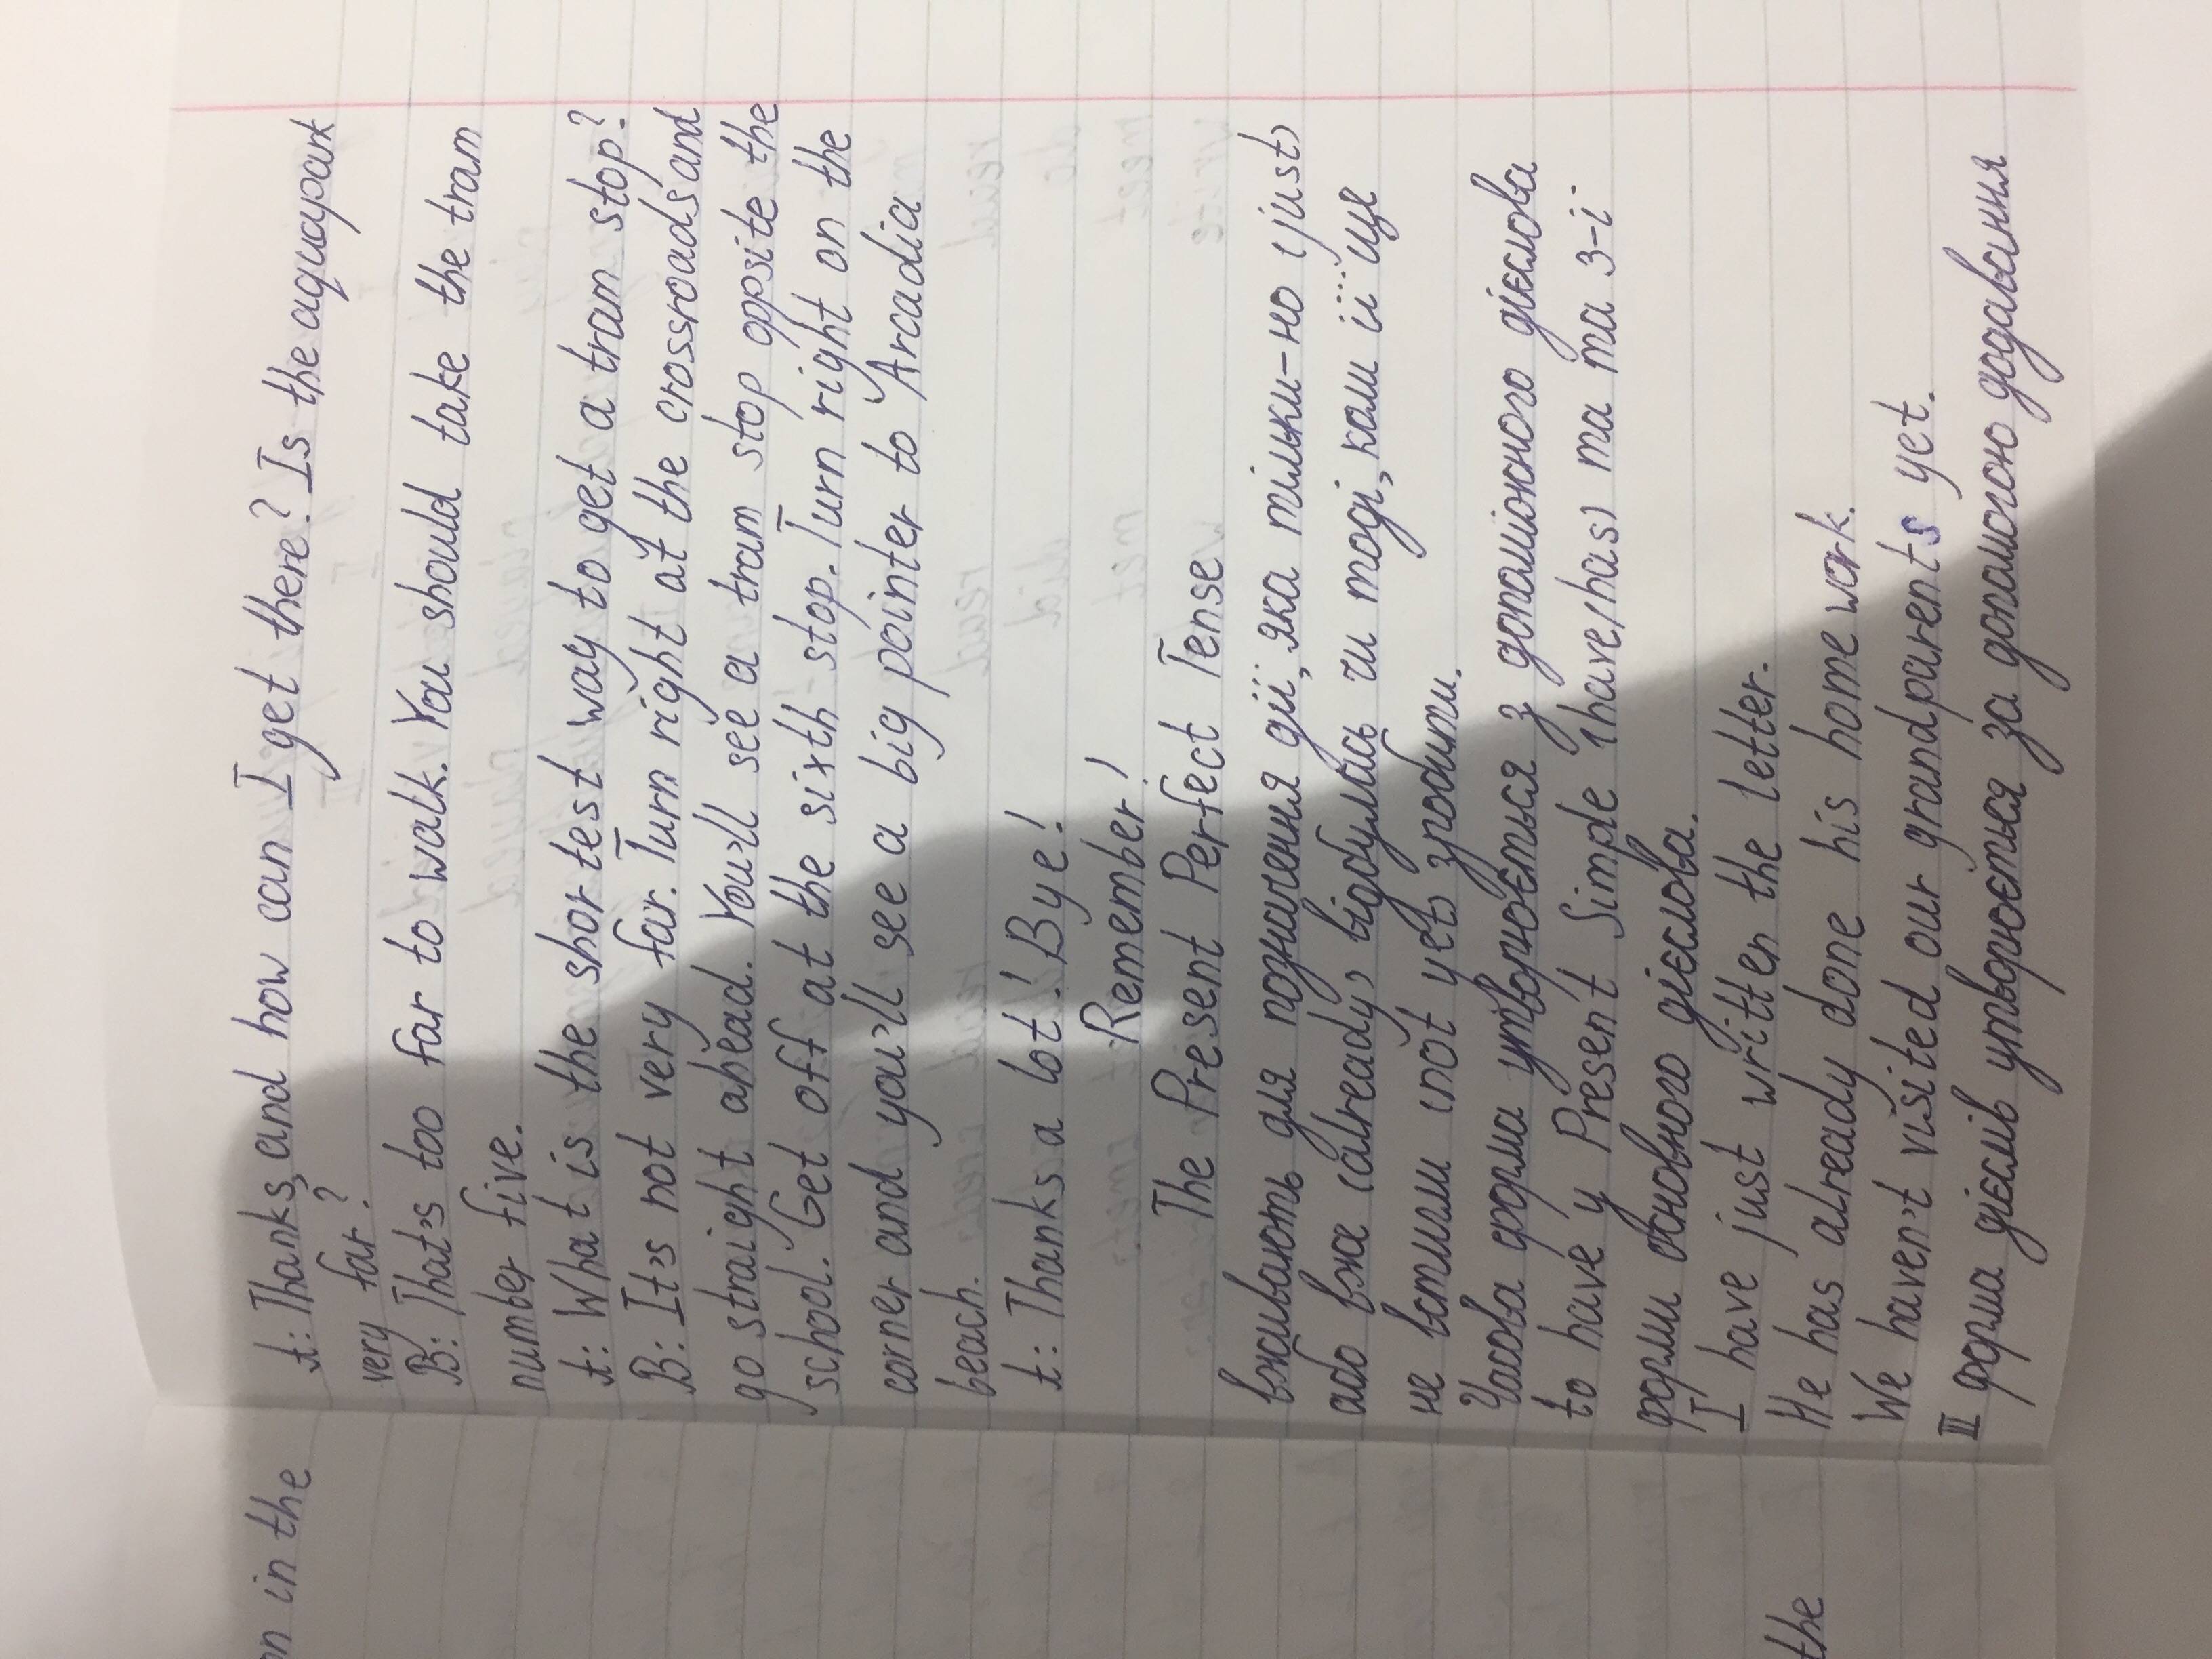 A: Thanks, and how can I get there? Is the aquapark
very far?
B: That's too far to walk. You should take the tram
number five.
A: What is the shortest way to get a tram stop?
B: It's not very far. Turn right at the crossroads and
go straight ahead. You'll see a tram stop oppsite the
school. Get off at the sixth stop. Turn right on the
corner and you'll see a big pointer to Arcadia
beach.
A: Thanks a lot! Bye!
Remember!
The Present Perfect Tense
вживають для позначення дії, яка тільки-но (just)
або вже (already) відбулась чи тоді, коли її ще
не встигли (not yet) зробити.
Часова форма утворюється з допоміжного дієслова
to have у Present Simple (have/has) та та 3-ї
форми основного дієслова.
I have just written the letter.
He has already done his home work.
We haven't visited our grandparents yet.
III форма дієслів утворюється за допомогою додавання
on in the
the